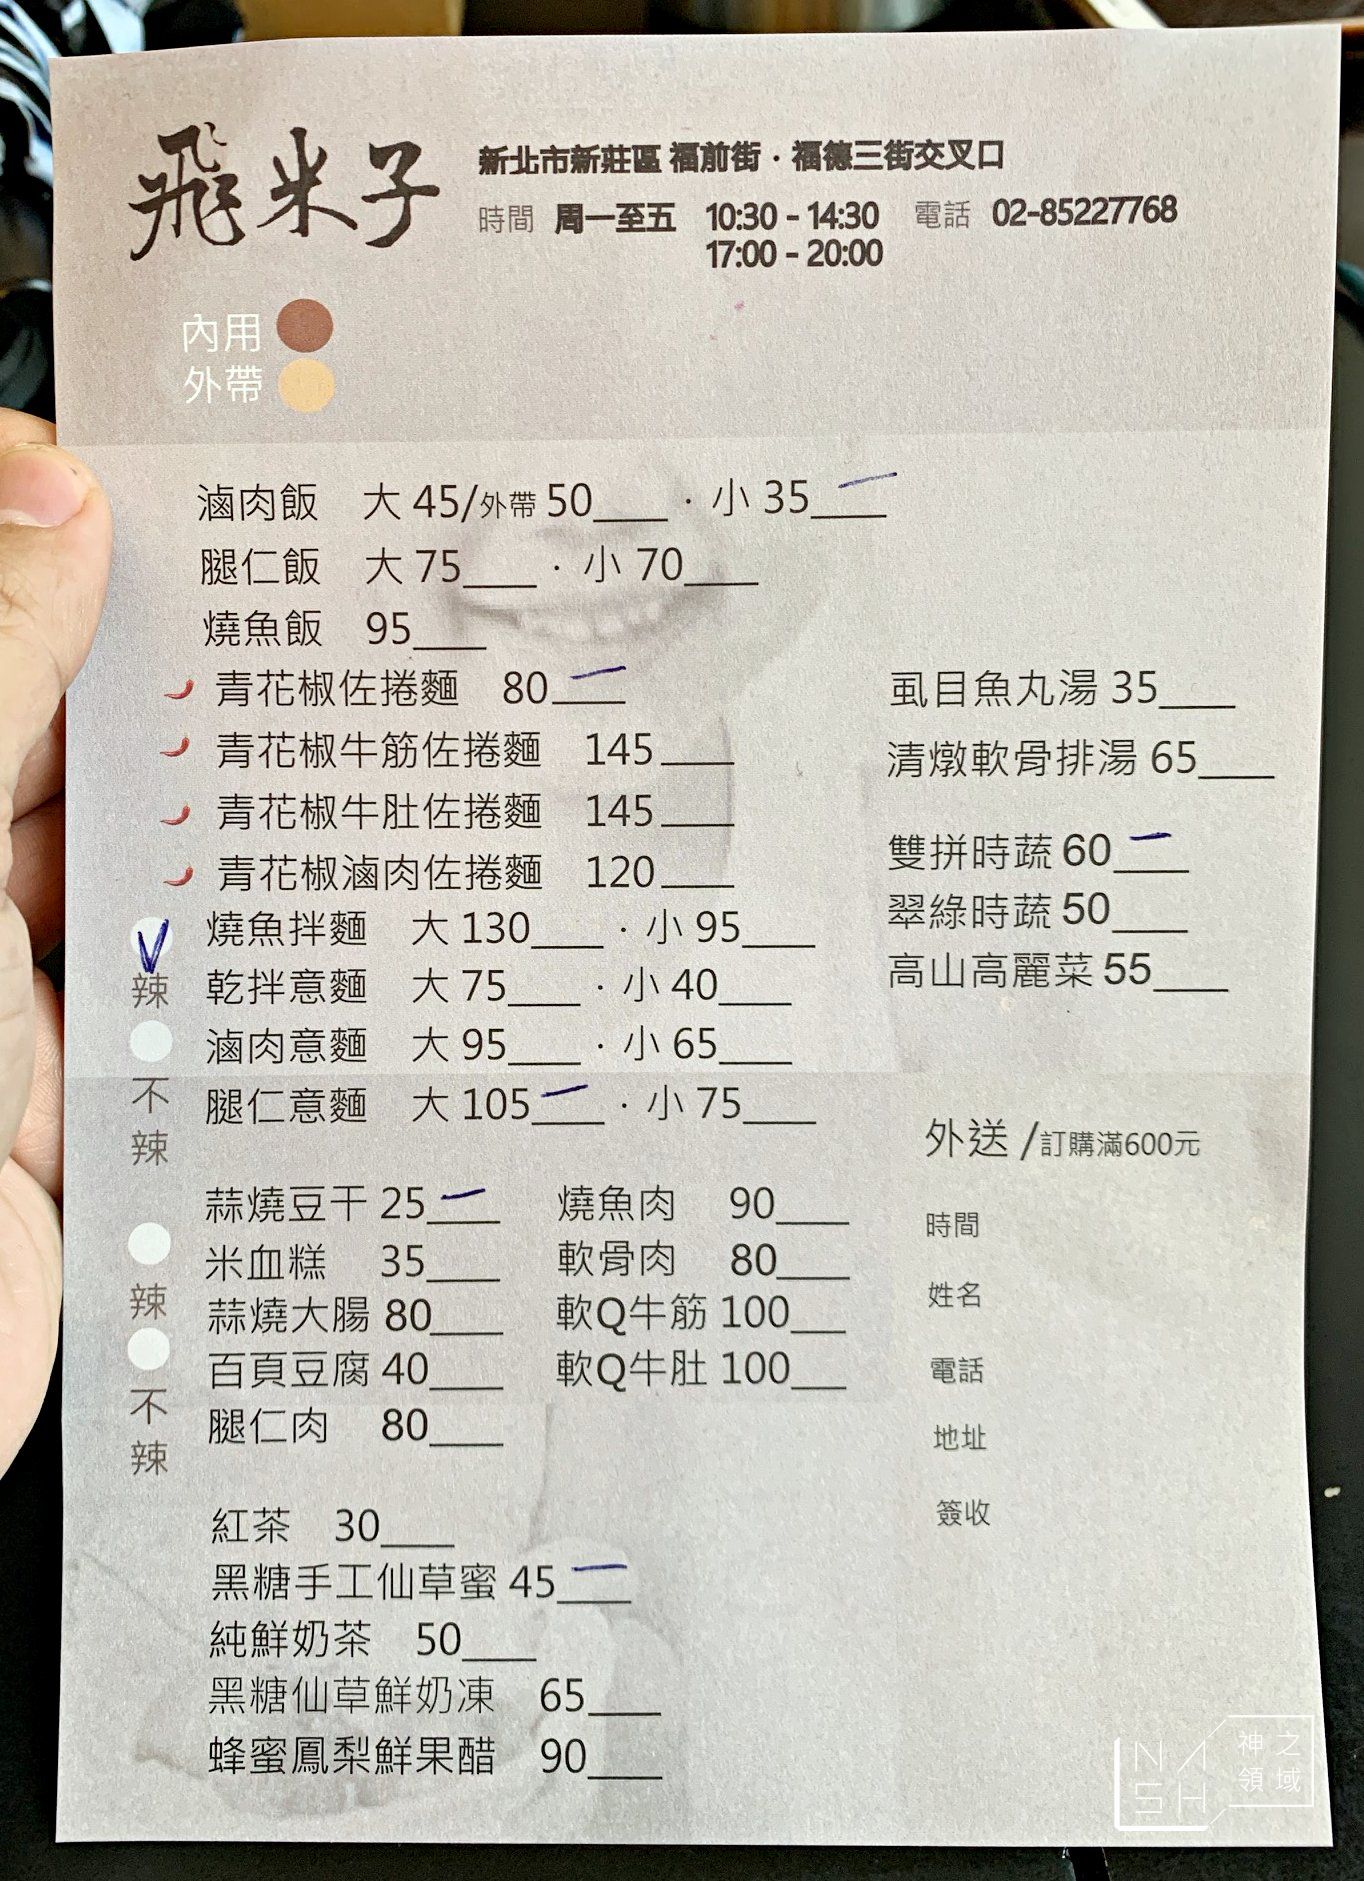 飛米子
新北市新莊區 福前街．福德三街交叉口
時間 周一至五 10:30 - 14:30 電話 02-85227768
17:00 - 20:00
內用
外帶
滷肉飯 大 45/外帶 50____．小 35____
腿仁飯 大 75____．小 70____
燒魚飯 95____
青花椒佐捲麵 80____
青花椒牛筋佐捲麵 145____
青花椒牛肚佐捲麵 145____
青花椒滷肉佐捲麵 120____
燒魚拌麵 大 130____．小 95____
乾拌意麵 大 75____．小 40____
滷肉意麵 大 95____．小 65____
腿仁意麵 大 105____．小 75____
辣
不辣
虱目魚丸湯 35____
清燉軟骨排湯 65____
雙拼時蔬 60____
翠綠時蔬 50____
高山高麗菜 55____
蒜燒豆干 25____ 燒魚肉 90____
米血糕 35____ 軟骨肉 80____
蒜燒大腸 80____ 軟Q牛筋 100___
百頁豆腐 40____ 軟Q牛肚 100___
腿仁肉 80____
辣
不辣
紅茶 30____
黑糖手工仙草蜜 45____
純鮮奶茶 50____
黑糖仙草鮮奶凍 65____
蜂蜜鳳梨鮮果醋 90____
外送 /訂購滿600元
時間
姓名
電話
地址
簽收
NASH 神之領域